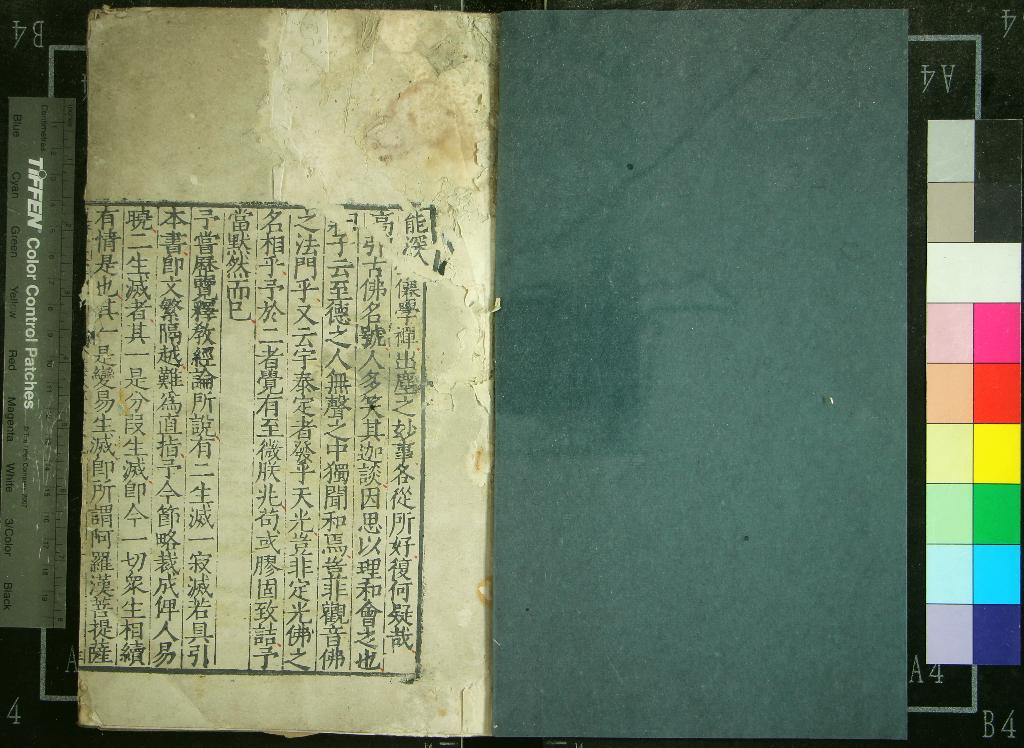 能深 儒學禪出塵之妙事各從所好復何疑哉
引古佛名號人多笑其迦談因思以理和會之也
子云至德之人無聲之中獨聞和焉豈非觀音佛
之法門乎又云宇泰定者發乎天光豈非定光佛之
名相乎予於二者覺有至微朕兆苟或膠固致詰予
當默然而已
予嘗歷覽釋教經論所說有二生滅一寂滅若具引
本書即文繁隔越難為直指予今節略裁成俾人易
曉二生滅者其一是分段生滅即今一切眾生相續
有情是也其一是變易生滅即所謂阿羅漢菩提薩
TIFFEN Color Control Patches
Centimetres
Blue
Cyan
Green
Yellow
Red
Magenta
White
3/Color
Black
B4
A4
4
A4
4
A4
B4